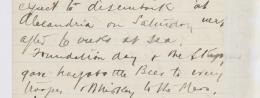 expect to disembark at
Alexandria on Saturday next
after 6 weeks at sea.
Foundation day & the
gave the Beer to every
trooper & Whiskey to the Mess.